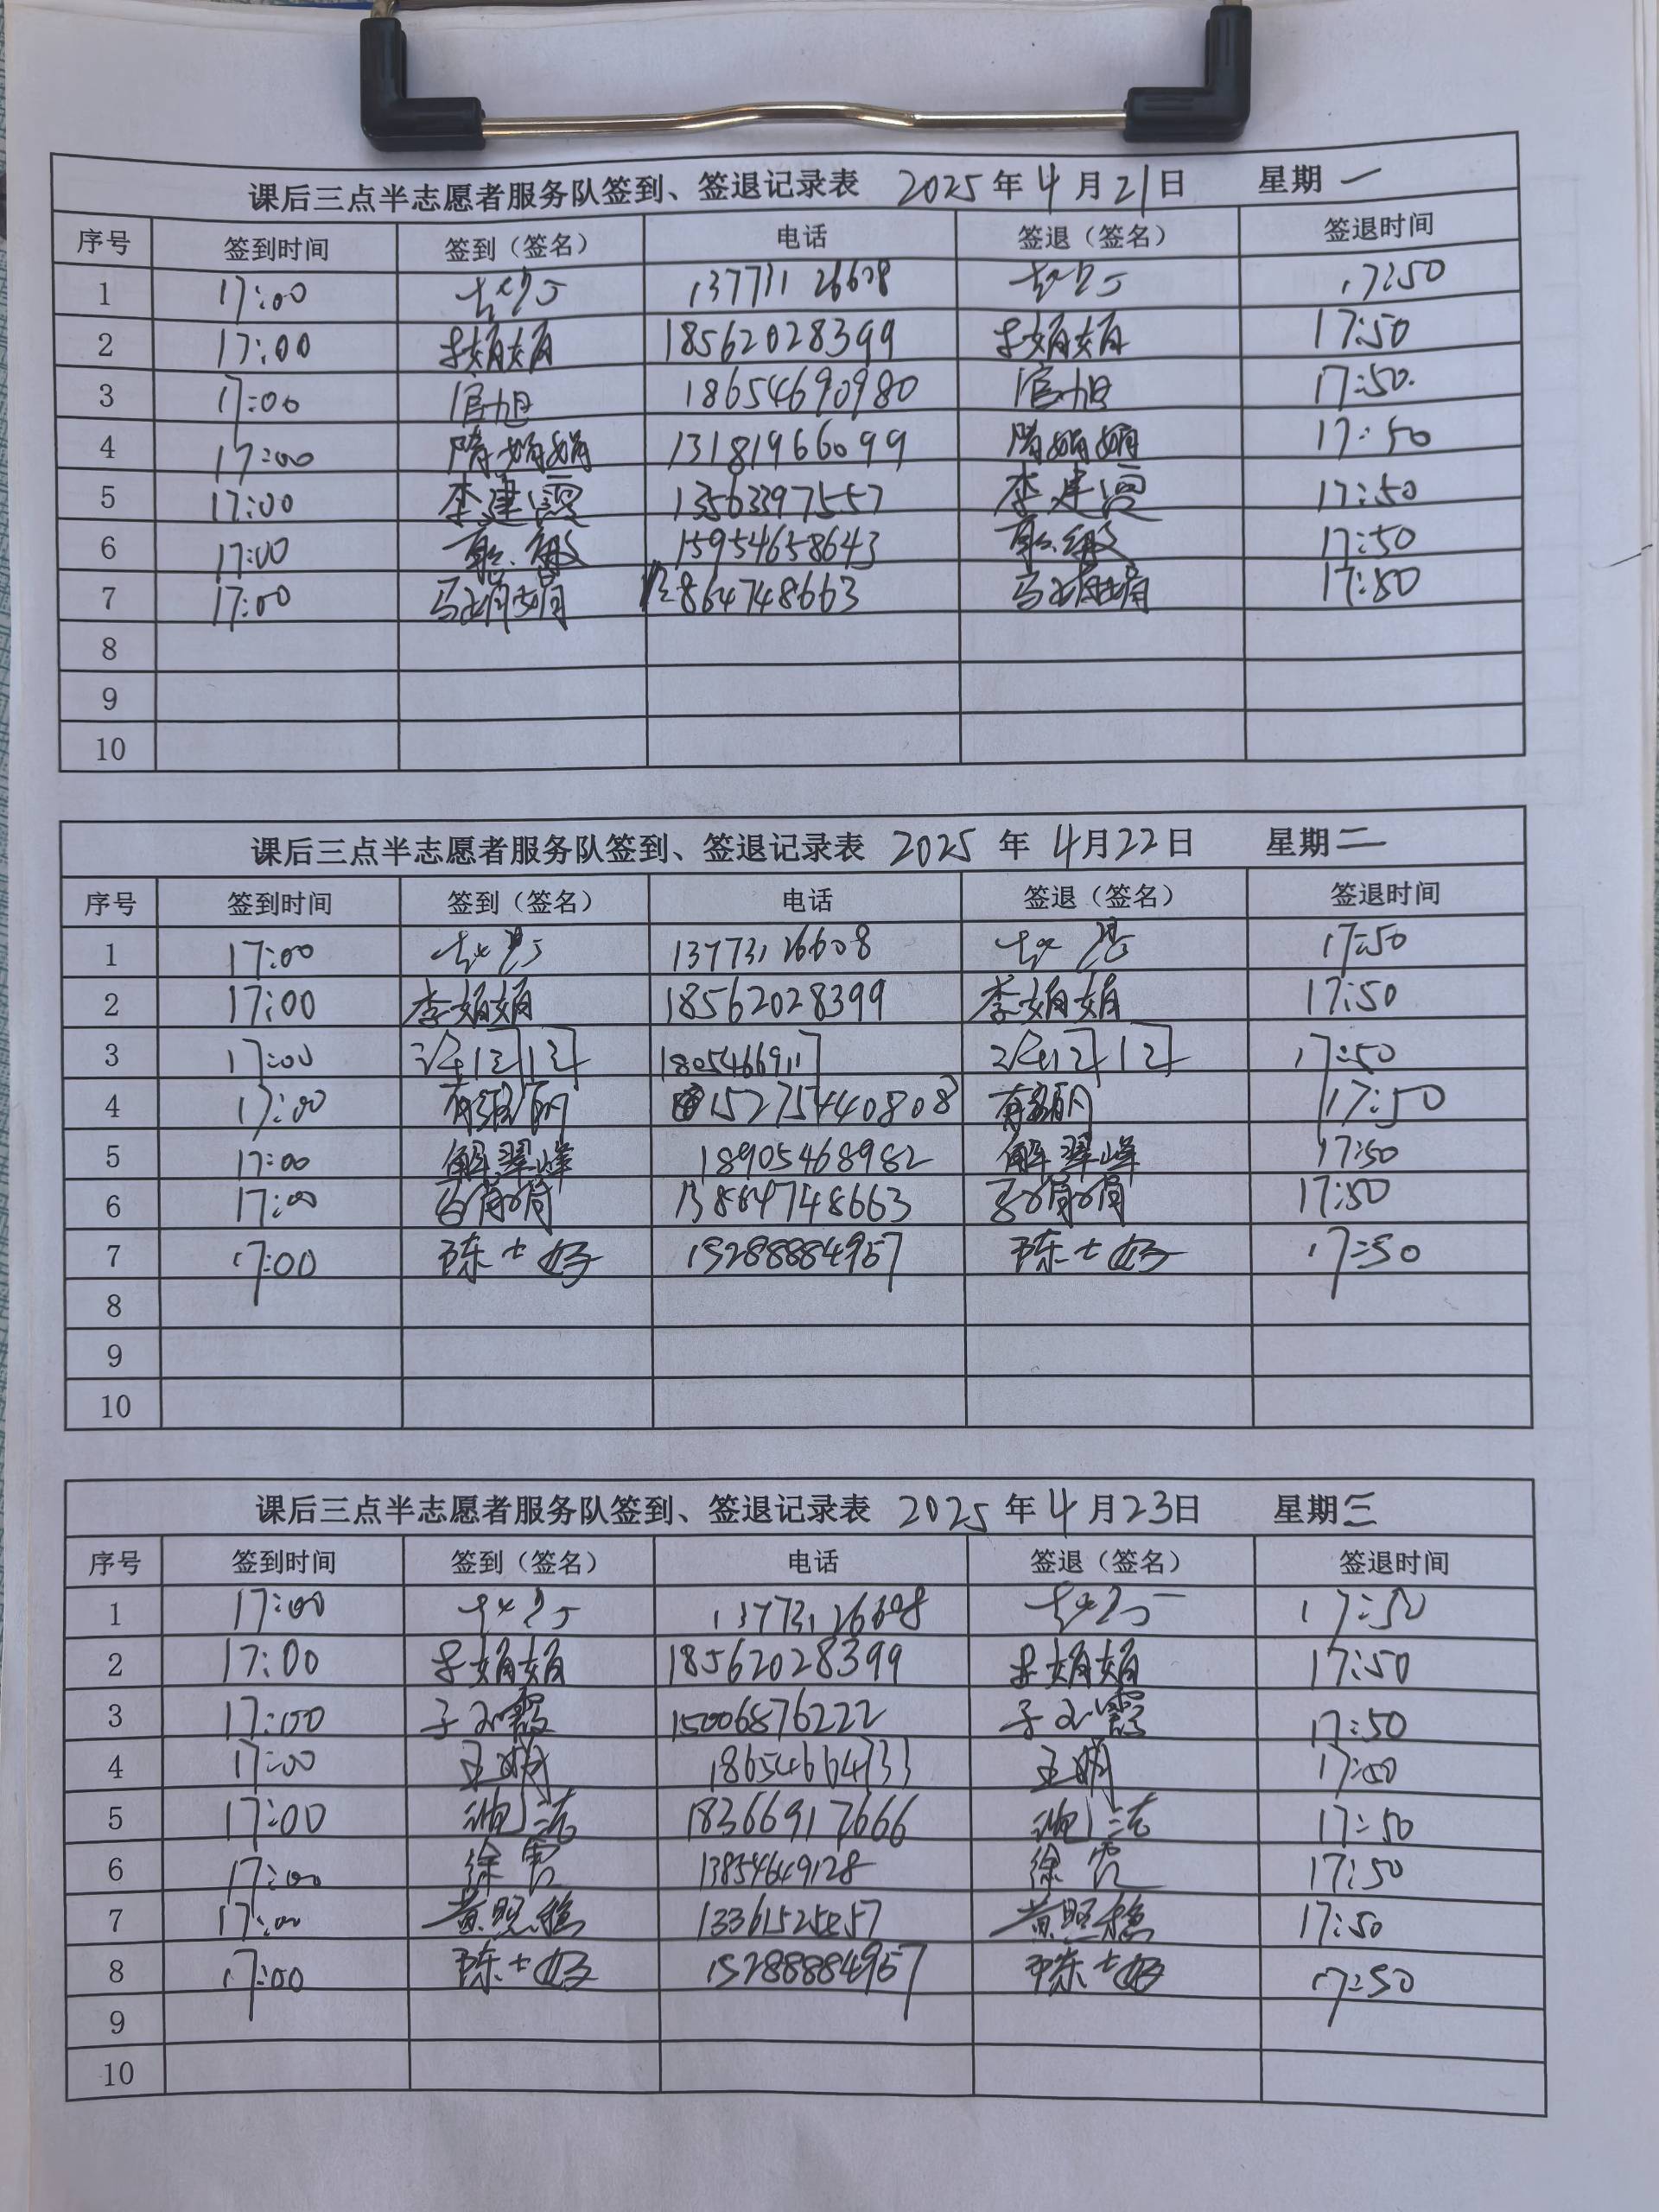 课后三点半志愿者服务队签到、签退记录表 2025年4月21日 星期一
序号 签到时间 签到（签名） 电话 签退（签名） 签退时间
1 17:00 13773126608 17:50
2 17:00 李娟娟 18562028399 李娟娟 17:50
3 17:00 官旭 18654690980 官旭 17:50
4 17:00 隋娟娟 13181966099 隋娟娟 17:50
5 17:00 李建霞 13563397557 李建霞 17:50
6 17:00 15954658643 17:50
7 17:00 马娟娟 13864748663 马娟娟 17:50
8
9
10
课后三点半志愿者服务队签到、签退记录表 2025年4月22日 星期二
序号 签到时间 签到（签名） 电话 签退（签名） 签退时间
1 17:00 13773126608 17:50
2 17:00 李娟娟 18562028399 李娟娟 17:50
3 17:00 17:50
4 17:00 15275440808 17:50
5 17:00 解翠峰 18905468982 解翠峰 17:50
6 17:00 13864748663 17:50
7 17:00 陈士好 15288884957 陈士好 17:50
8
9
10
课后三点半志愿者服务队签到、签退记录表 2025年4月23日 星期三
序号 签到时间 签到（签名） 电话 签退（签名） 签退时间
1 17:00 13773126608 17:50
2 17:00 李娟娟 18562028399 李娟娟 17:50
3 17:00 15006876222 17:50
4 17:00 18654664733 17:50
5 17:00 18366917666 17:50
6 17:00 徐霞 13854649128 徐霞 17:50
7 17:00 17:50
8 17:00 陈士好 15288884957 陈士好 17:50
9
10